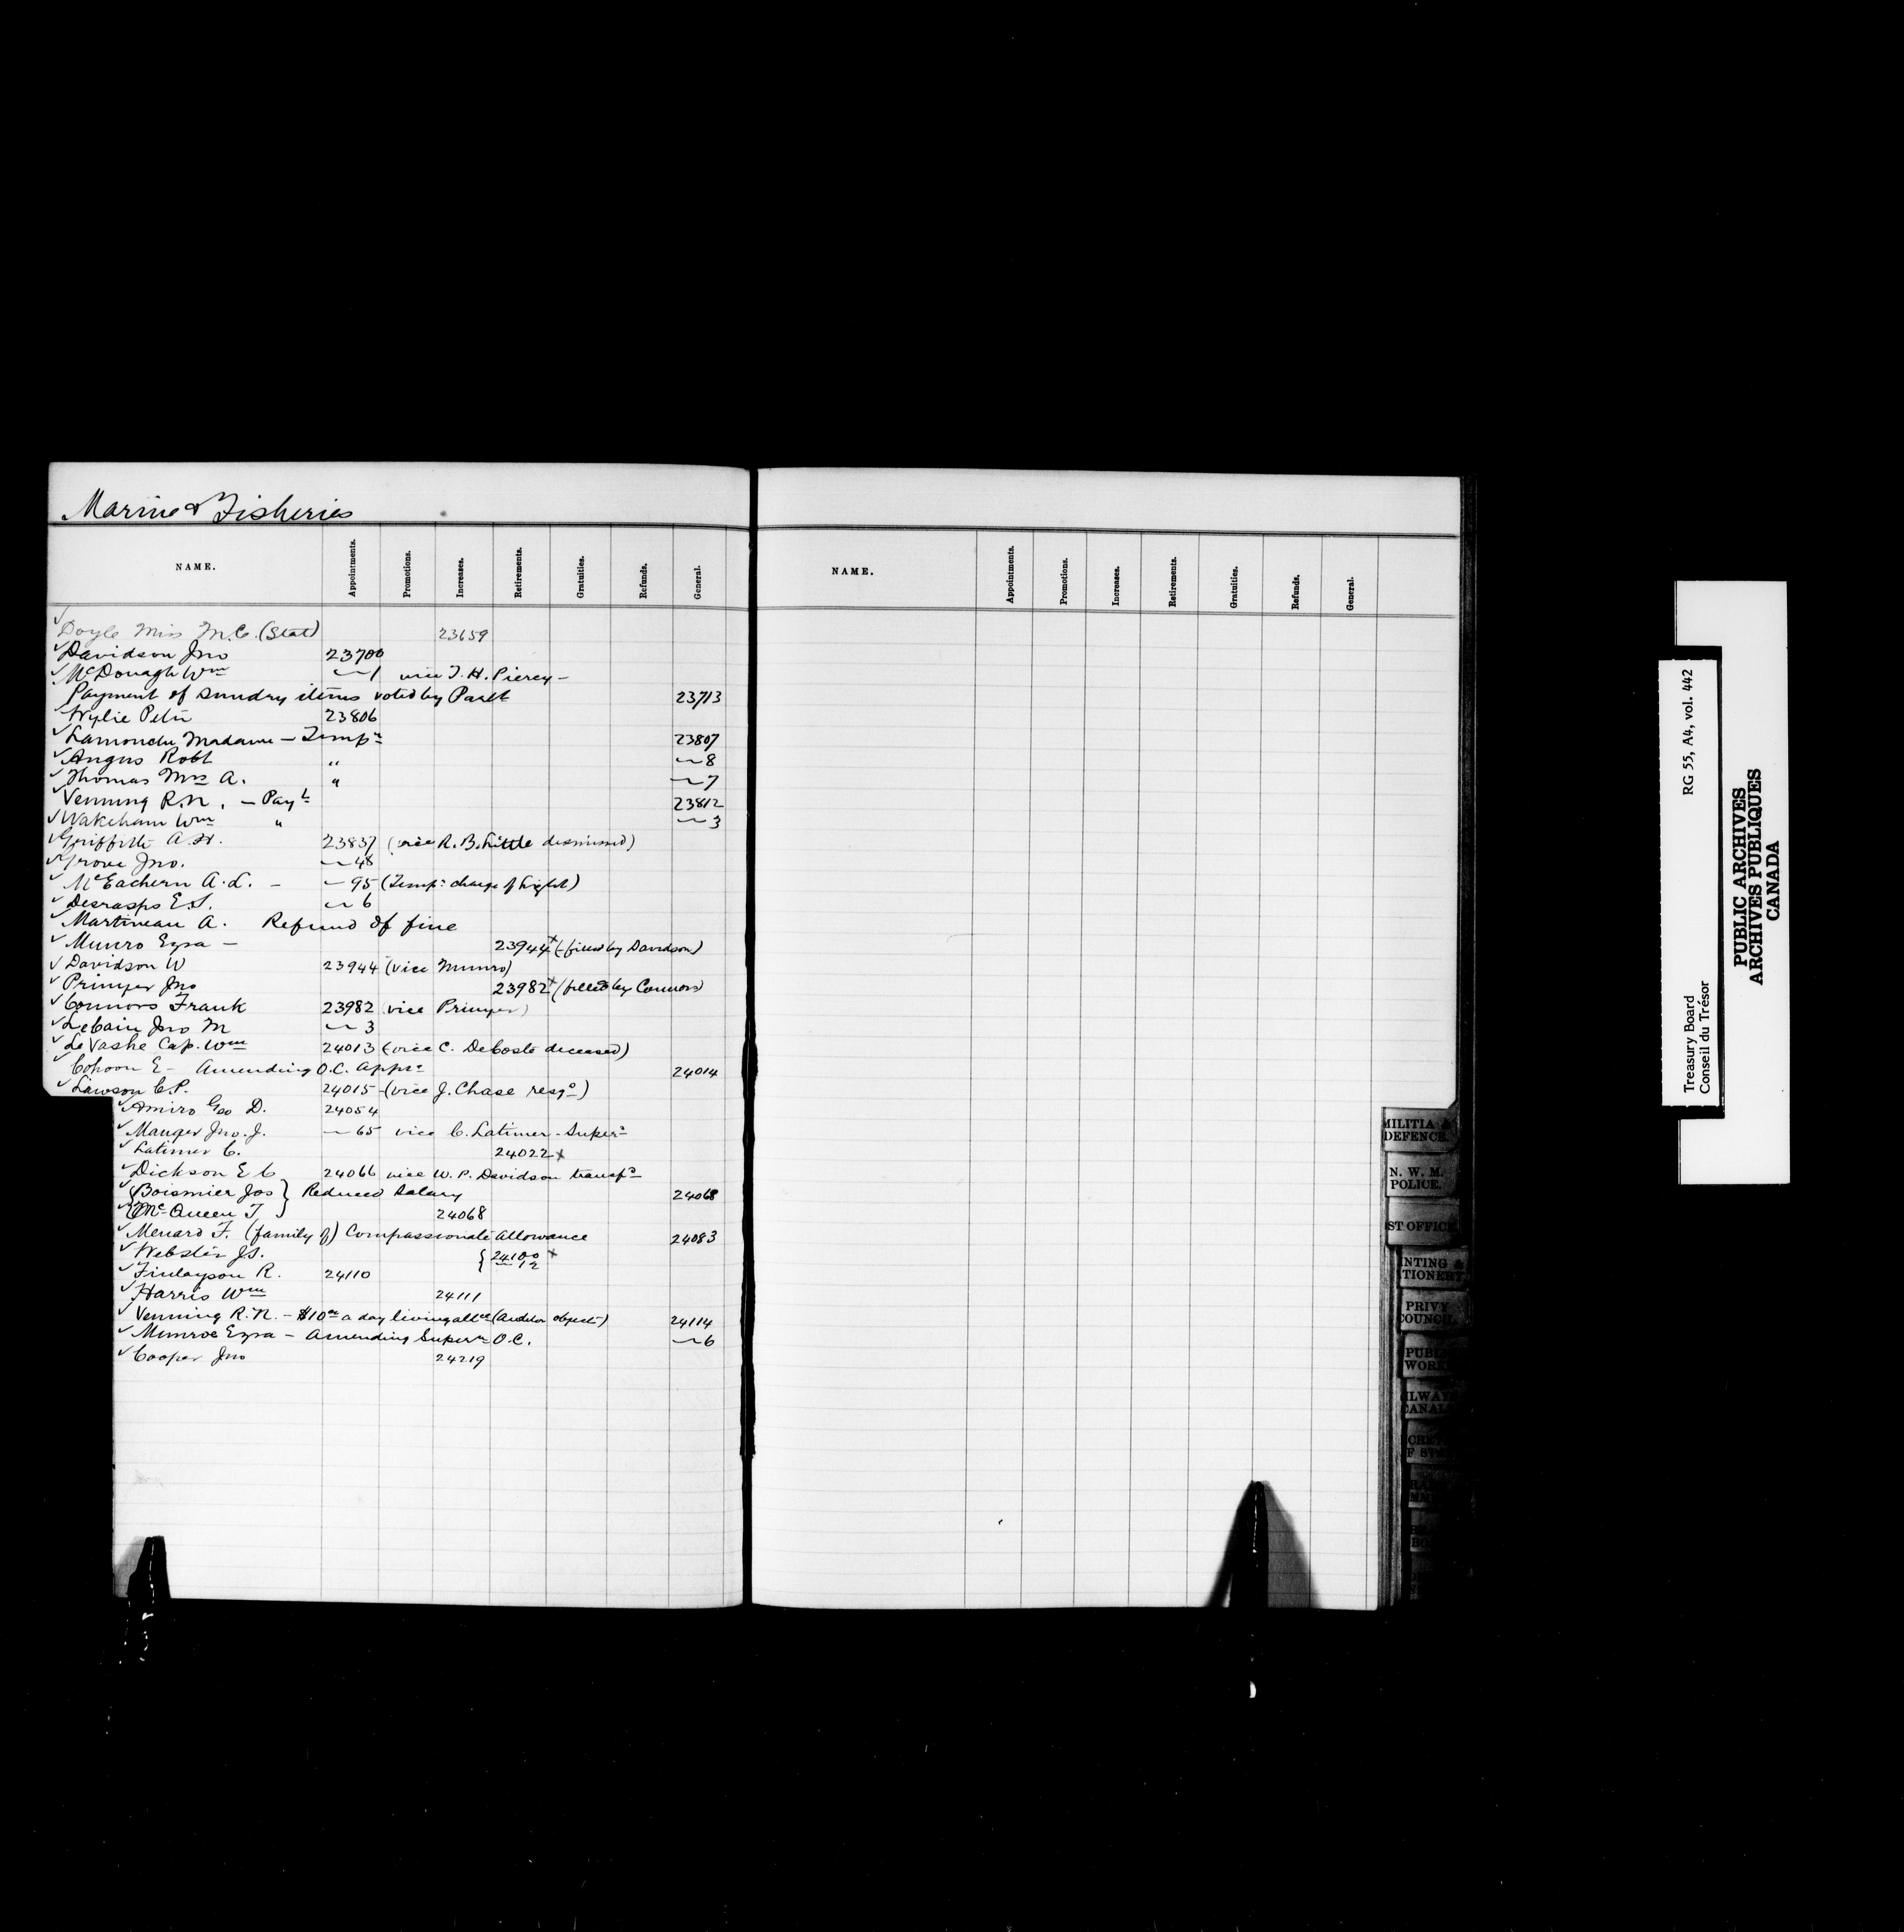 Marine & Fisheries
NAME. Appointments. Promotions. Increases. Retirements. Gratuities. Refunds. General.
Doyle Miss M.C. (Stat) 23659
Davidson Jno 23700
McDonagh Wm 〃1 vice T. H. Piercy –
Payment of sundry items voted by Parlt 23713
Wylie Peter 23806
Lamonche Madame – Tempy 23807
Angus Robt " 〃8
Thomas Mrs A. " 〃7
Venning R.N. – Payt 23812
Wakeham Wm " 〃3
Griffith A.H. 23837 (vice R. B. Little dismissed)
Grove Jno. 〃48
McEachern A.L. – 〃95 (Tempy charge of Light)
Desrasps E.S. 〃6
Martineau A. Refund of fine
Munro Ezra – 23944x (filled by Davidson)
Davidson W 23944 (vice Munro)
Primyer Jno 23982x (filled by Connors)
Connors Frank 23982 (vice Primyer)
LeCain Jno M 〃3
LeVashe Cap. Wm 24013 (vice C. DeCoste deceased)
Cohoon E – Amending O.C. Appt 24014
Lawson C.P. 24015 (vice J. Chase resgd)
Amiro Geo D. 24054
Mauger Jno. J. 〃65 vice C. Latimer – Superd
Latimer C. 24022x
Dickson E C 24066 vice W. P. Davidson transfd
{Boismier Jos} Reduced Salary 24068
{McQueen T} 24068
Menard F. (family of) Compassionate Allowance 24083
Webster J.S. {24100 x
〃12
Finlayson R. 24110
Harris Wm 24111
Venning R.N. – $10 00 a day living allce (Auditor objects) 24114
Munroe Ezra – Amending Supern O.C. 〃6
Cooper Jno 24219
NAME. Appointments. Promotions. Increases. Retirements. Gratuities. Refunds. General.
MILITIA &
DEFENCE.
N. W. M.
POLICE.
ST OFFIC
INTING &
TIONERY
PRIVY
COUNCIL
PUBL
WORK
ILWAY
CANAL
CRE
F ST
Treasury Board RG 55, A4, vol. 442
Conseil du Trésor
PUBLIC ARCHIVES
ARCHIVES PUBLIQUES
CANADA